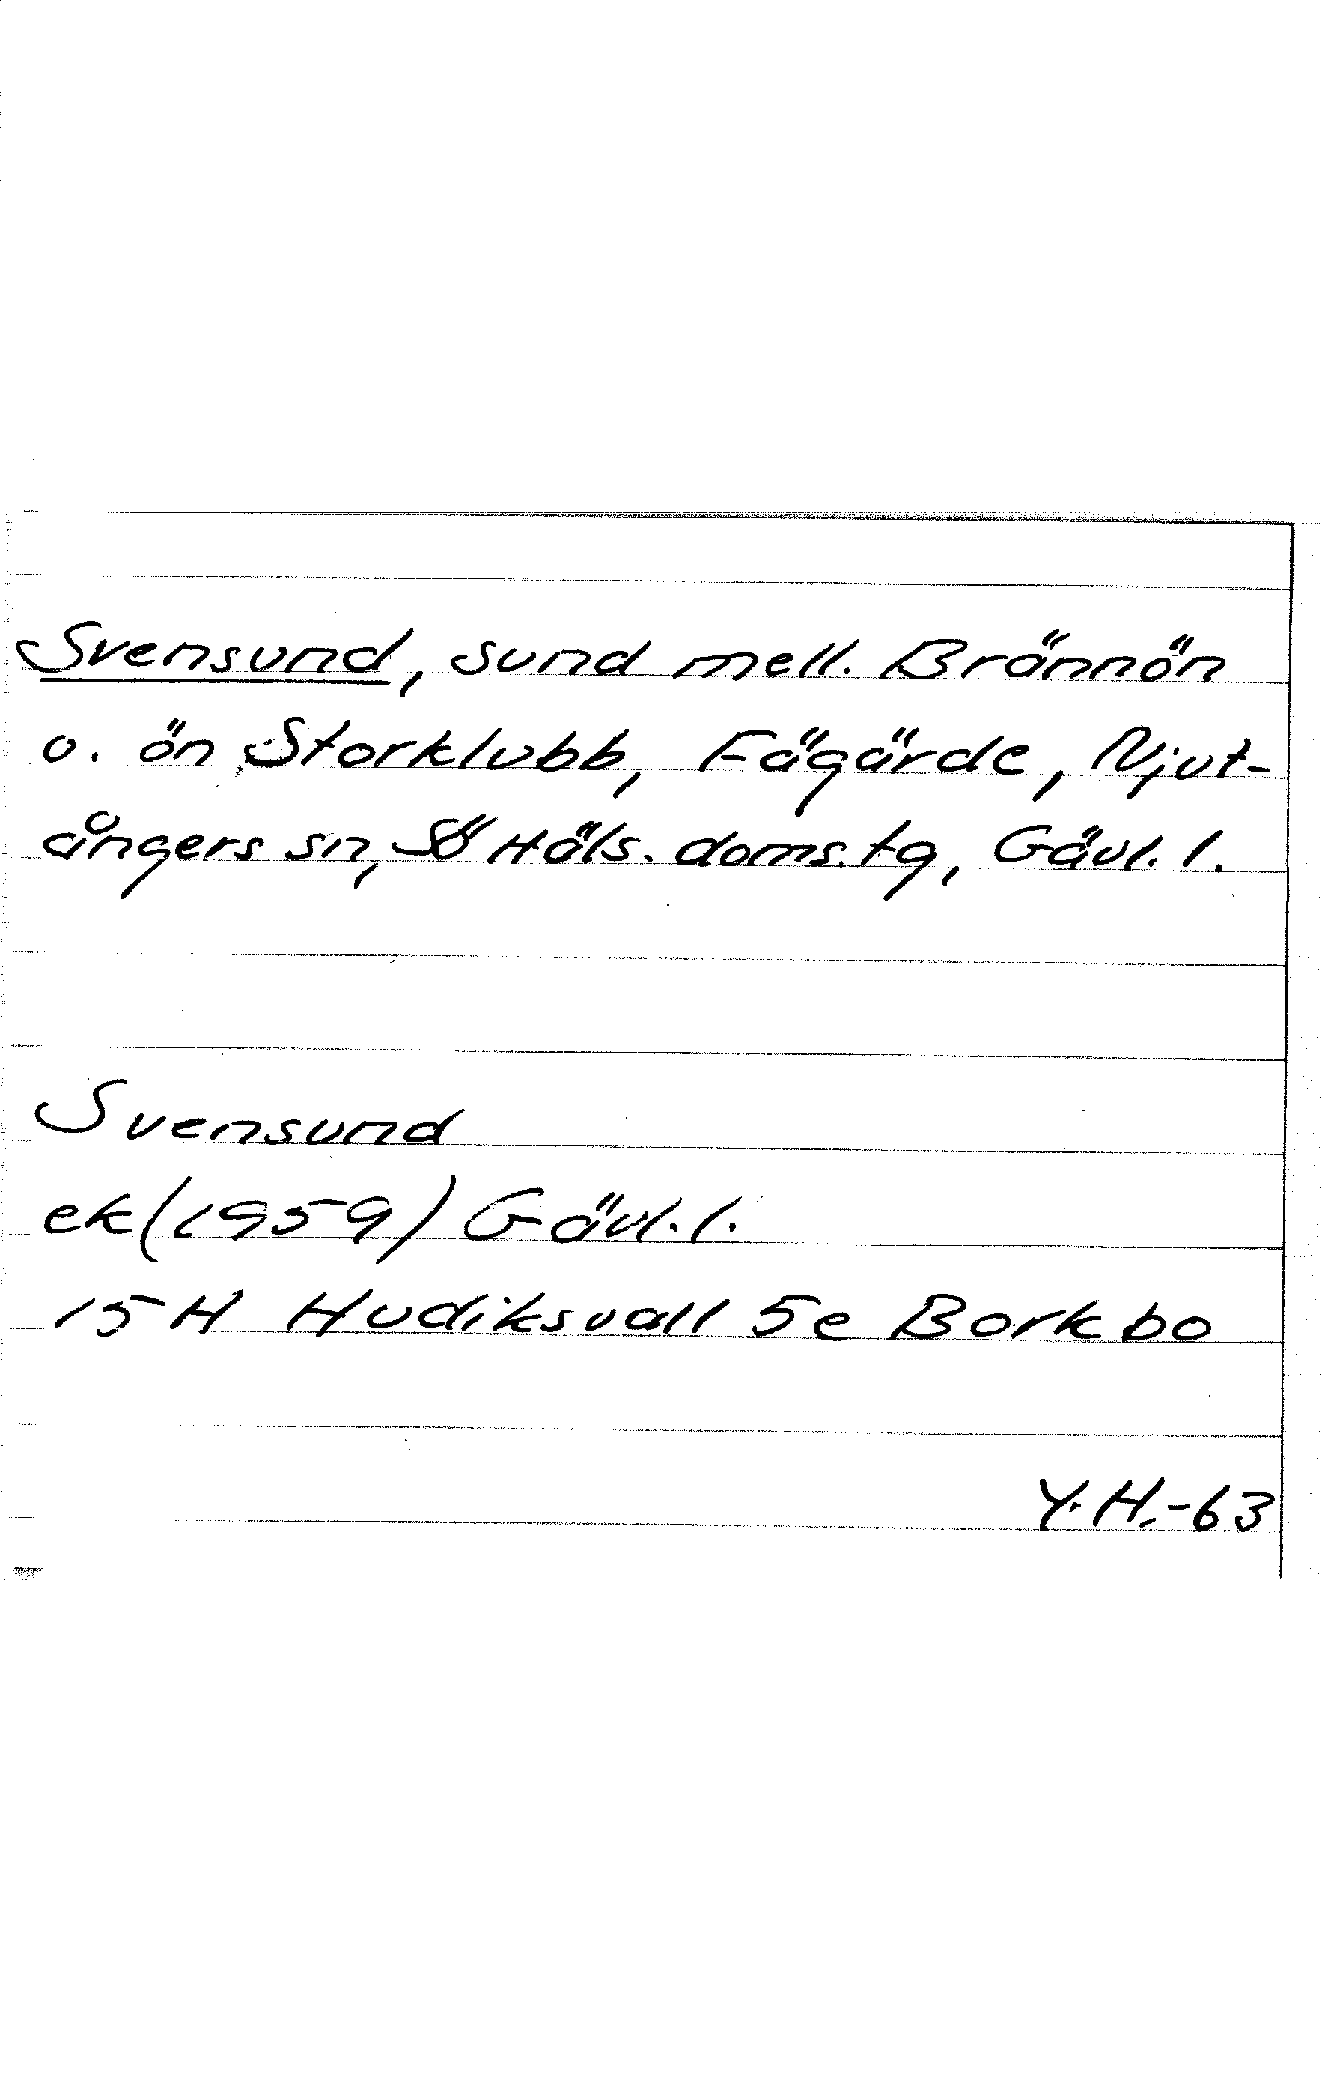 Svensund, sund mell. Brännön
o. ön Storklubb, Fägärde, Njut-
ångers sn, Sö Häls. doms. tg, Gävl. l.
Svensund
ek (1959) Gävl. l.
15 H Hudiksvall 5e Borkbo
Y. H. -63